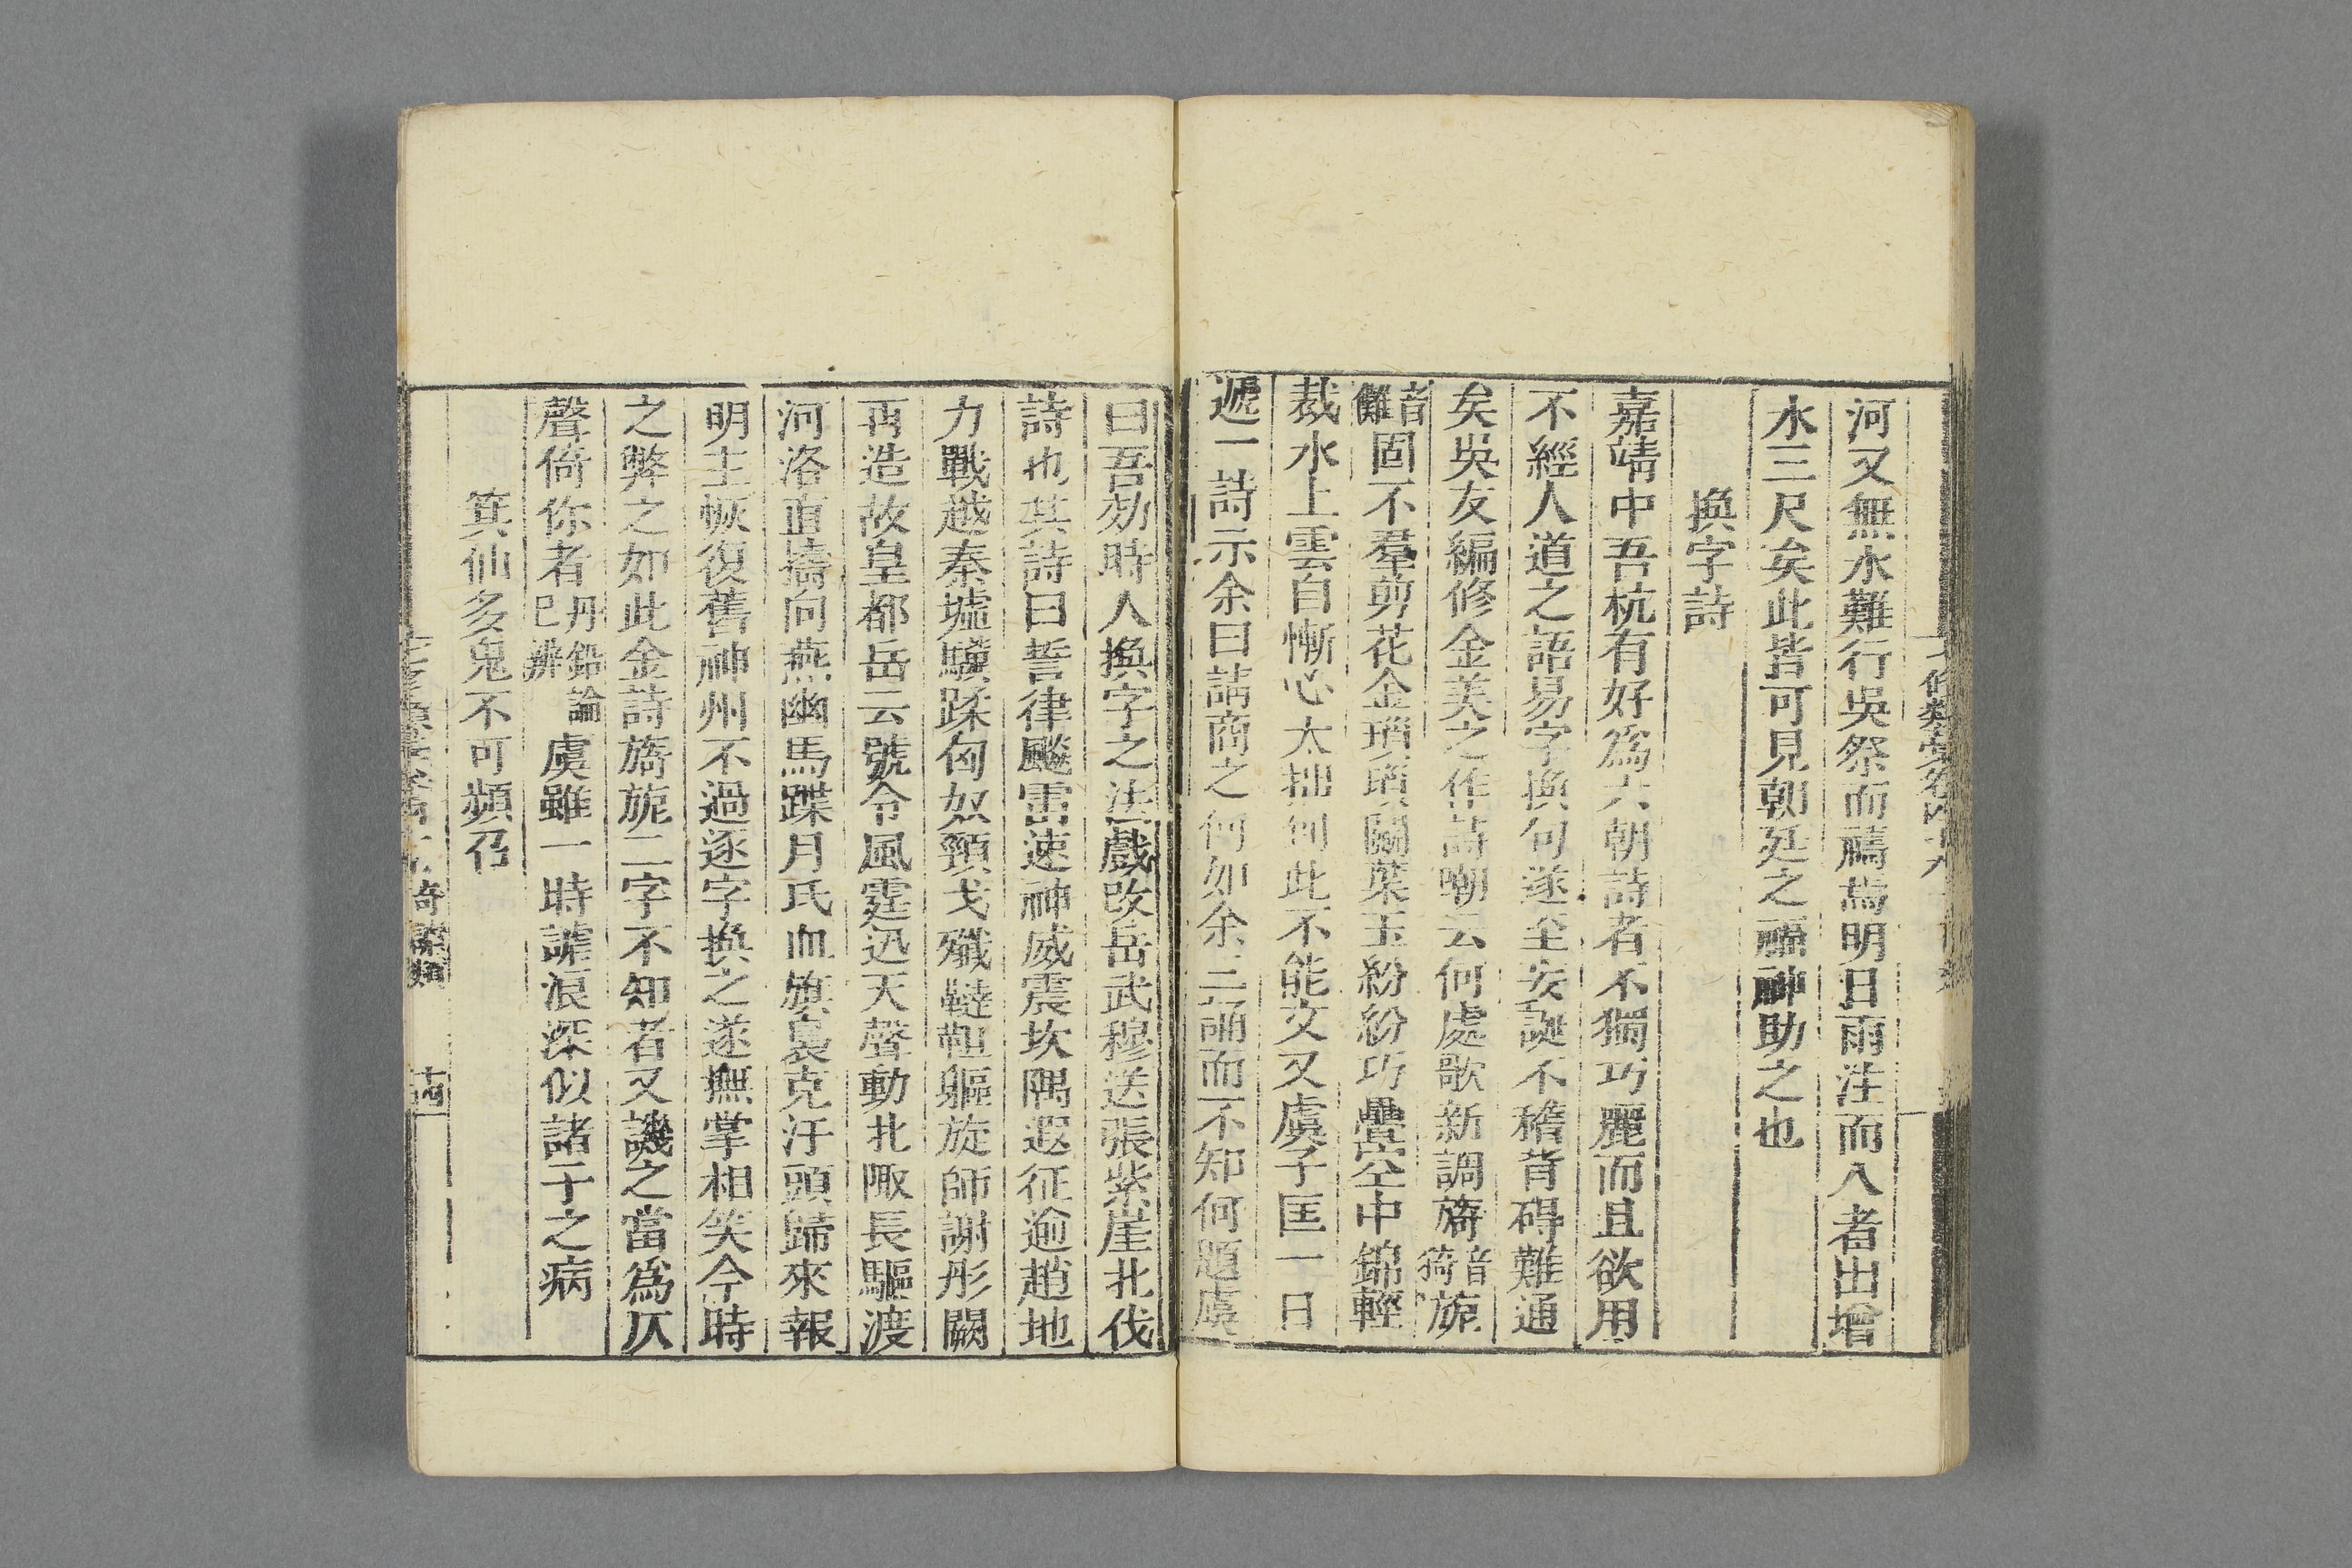 河又無水難行吳祭而禱焉明日雨注而入者出增
水三尺矣此皆可見朝廷之福神助之也
換字詩
嘉靖中吾杭有好爲六朝詩者不獨巧麗而且欲用
不經人道之語易字換句遂至妄誕不稽背碍難通
矣吳友編修金美之作詩嘲云何處歌新調旖音猗旎
音儺固不羣剪花金瑣瑣鬭葉玉紛紛巧疊空中錦輕
裁水上雲自慚心太拙到此不能文又虞子匡一日
遞一詩示余曰請商之何如余三誦而不知何題虞
曰吾効時人換字之法戲改岳武穆送張紫崖北伐
詩也其詩曰誓律飈雷速神威震坎隅遐征逾趙地
力戰越秦墟驥蹂匈奴頸戈殲韃靼軀旋師謝彤闕
再造故皇都岳云號令風霆迅天聲動北陬長驅渡
河洛直擣向燕幽馬蹀月氏血旗裊克汗頭歸來報
明主恢復舊神州不過逐字換之遂撫掌相笑今時
之弊之如此金詩旖旎二字不知者又譏之當爲仄
聲倚你者丹鉛論已辨虞雖一時謔浪深似諸于之病
箕仙多鬼不可頻召
奇謔類
十四